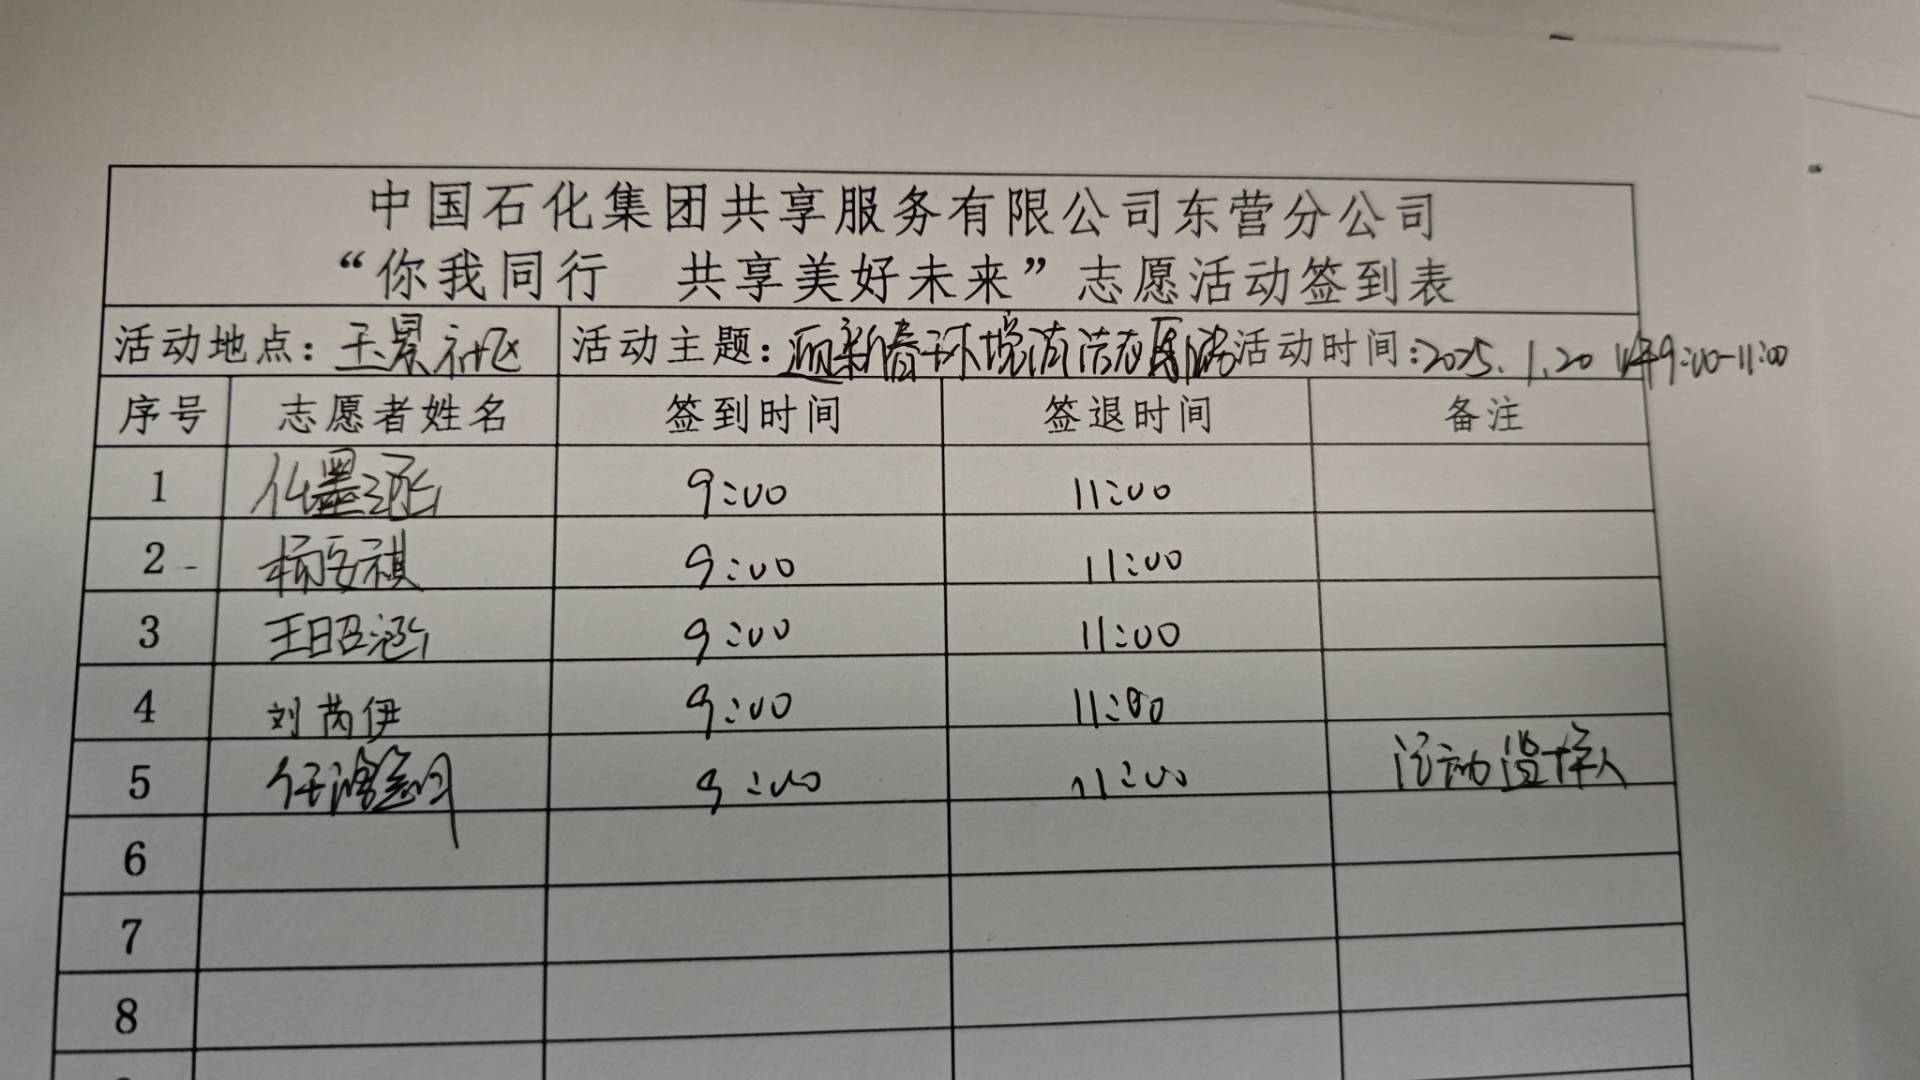 中国石化集团共享服务有限公司东营分公司
“你我同行 共享美好未来”志愿活动签到表
活动地点：玉景社区 活动主题：迎新春环境清洁志愿活动 活动时间：2025.1.20 上午9:00-11:00
序号 志愿者姓名 签到时间 签退时间 备注
1 墨涵 9:00 11:00
2 杨安祺 9:00 11:00
3 王昭涵 9:00 11:00
4 刘芮伊 9:00 11:00
5 任 9:00 11:00 活动 人
6
7
8